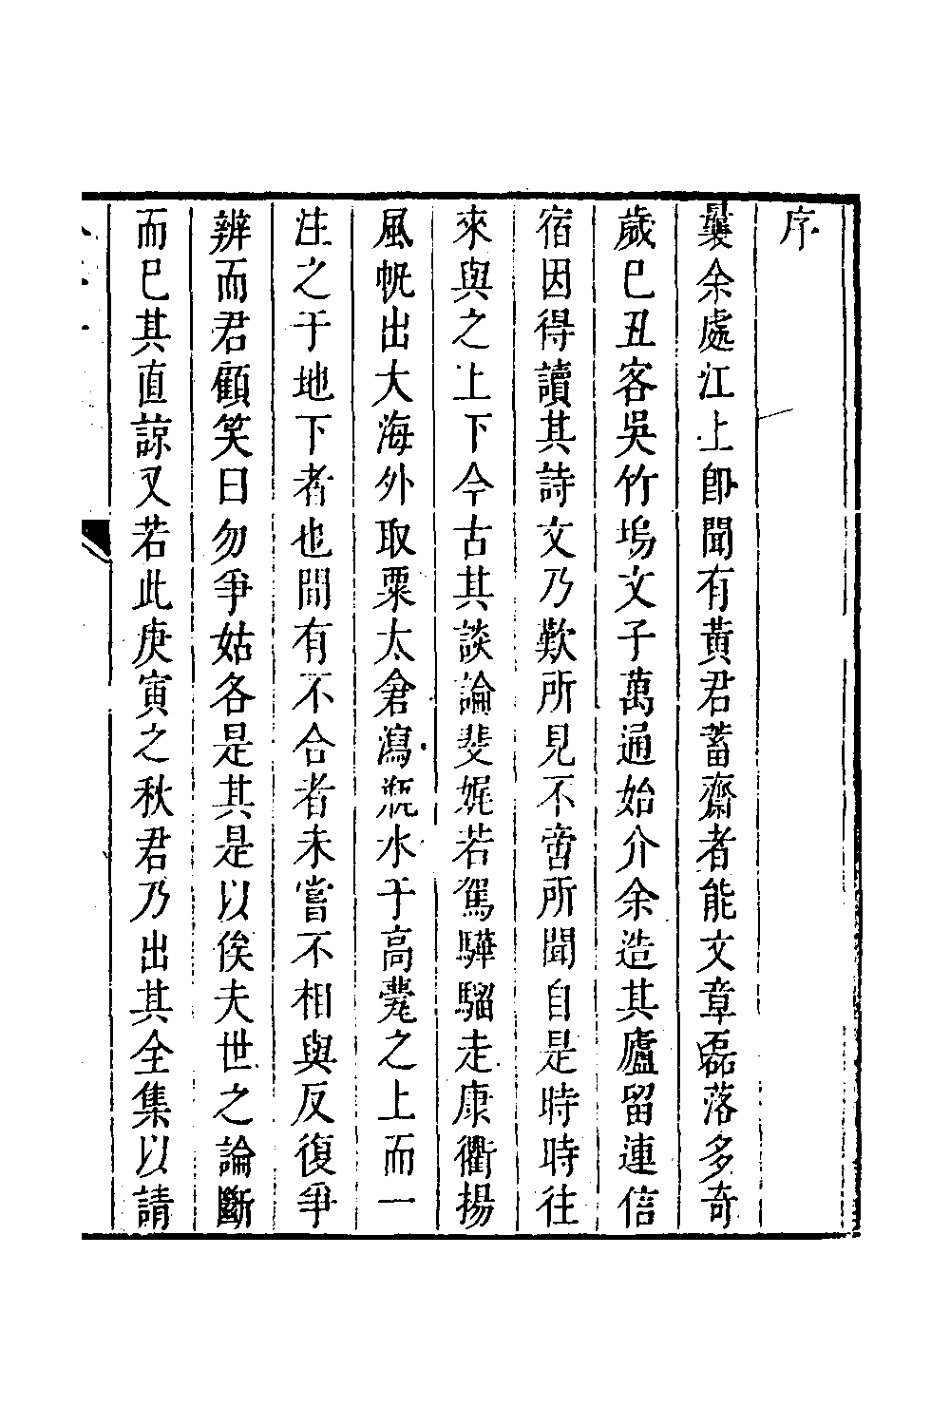 序
曩余處江上卽聞有黃君蓄齋者能文章磊落多奇
歲巳丑客吳竹塢文子萬通始介余造其廬留連信
宿因得讀其詩文乃歎所見不啻所聞自是時時往
來與之上下今古其談論斐娓若駕驊騮走康衢揚
風帆出大海外取粟太倉瀉瓶水于高甍之上而一
注之于地下者也間有不合者未嘗不相與反復爭
辨而君顧笑曰勿爭姑各是其是以俟夫世之論斷
而巳其直諒又若此庚寅之秋君乃出其全集以請